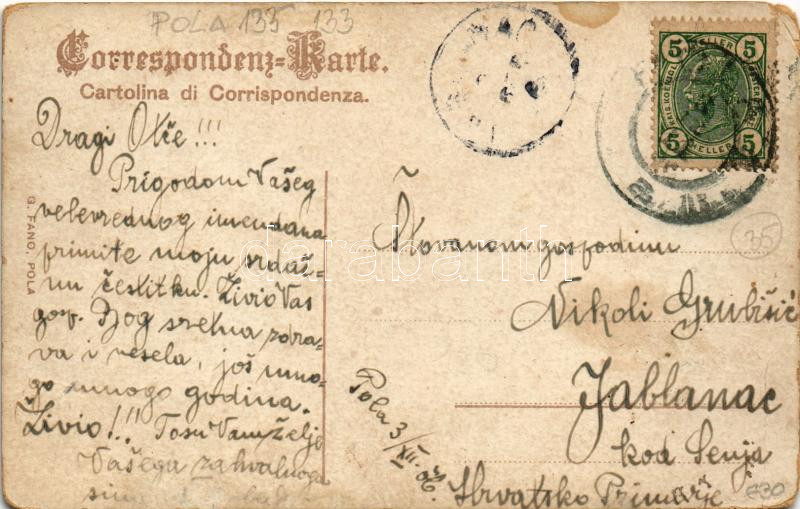 POLA 135 133
Correspondenz-Karte.
Cartolina di Corrispondenza.
5 HELLER 5
5 HELLER 5
35
G. FANO, POLA
Dragi Otče!!!
Prigodom Vašeg
velevrednog imendana
primite moju srdač-
nu čestitku. Živio Vas
gosp. Bog sretna zdra-
va i vesela, još mno-
go mnogo godina.
Živio!!! Tosu Vam želje
Vašega zahvalnoga
Pola 3/XII. 06.
Štovanom gospodinu
Nikoli Grubišić
Jablanac
kod Senja
Hrvatsko Primorje
darabanth